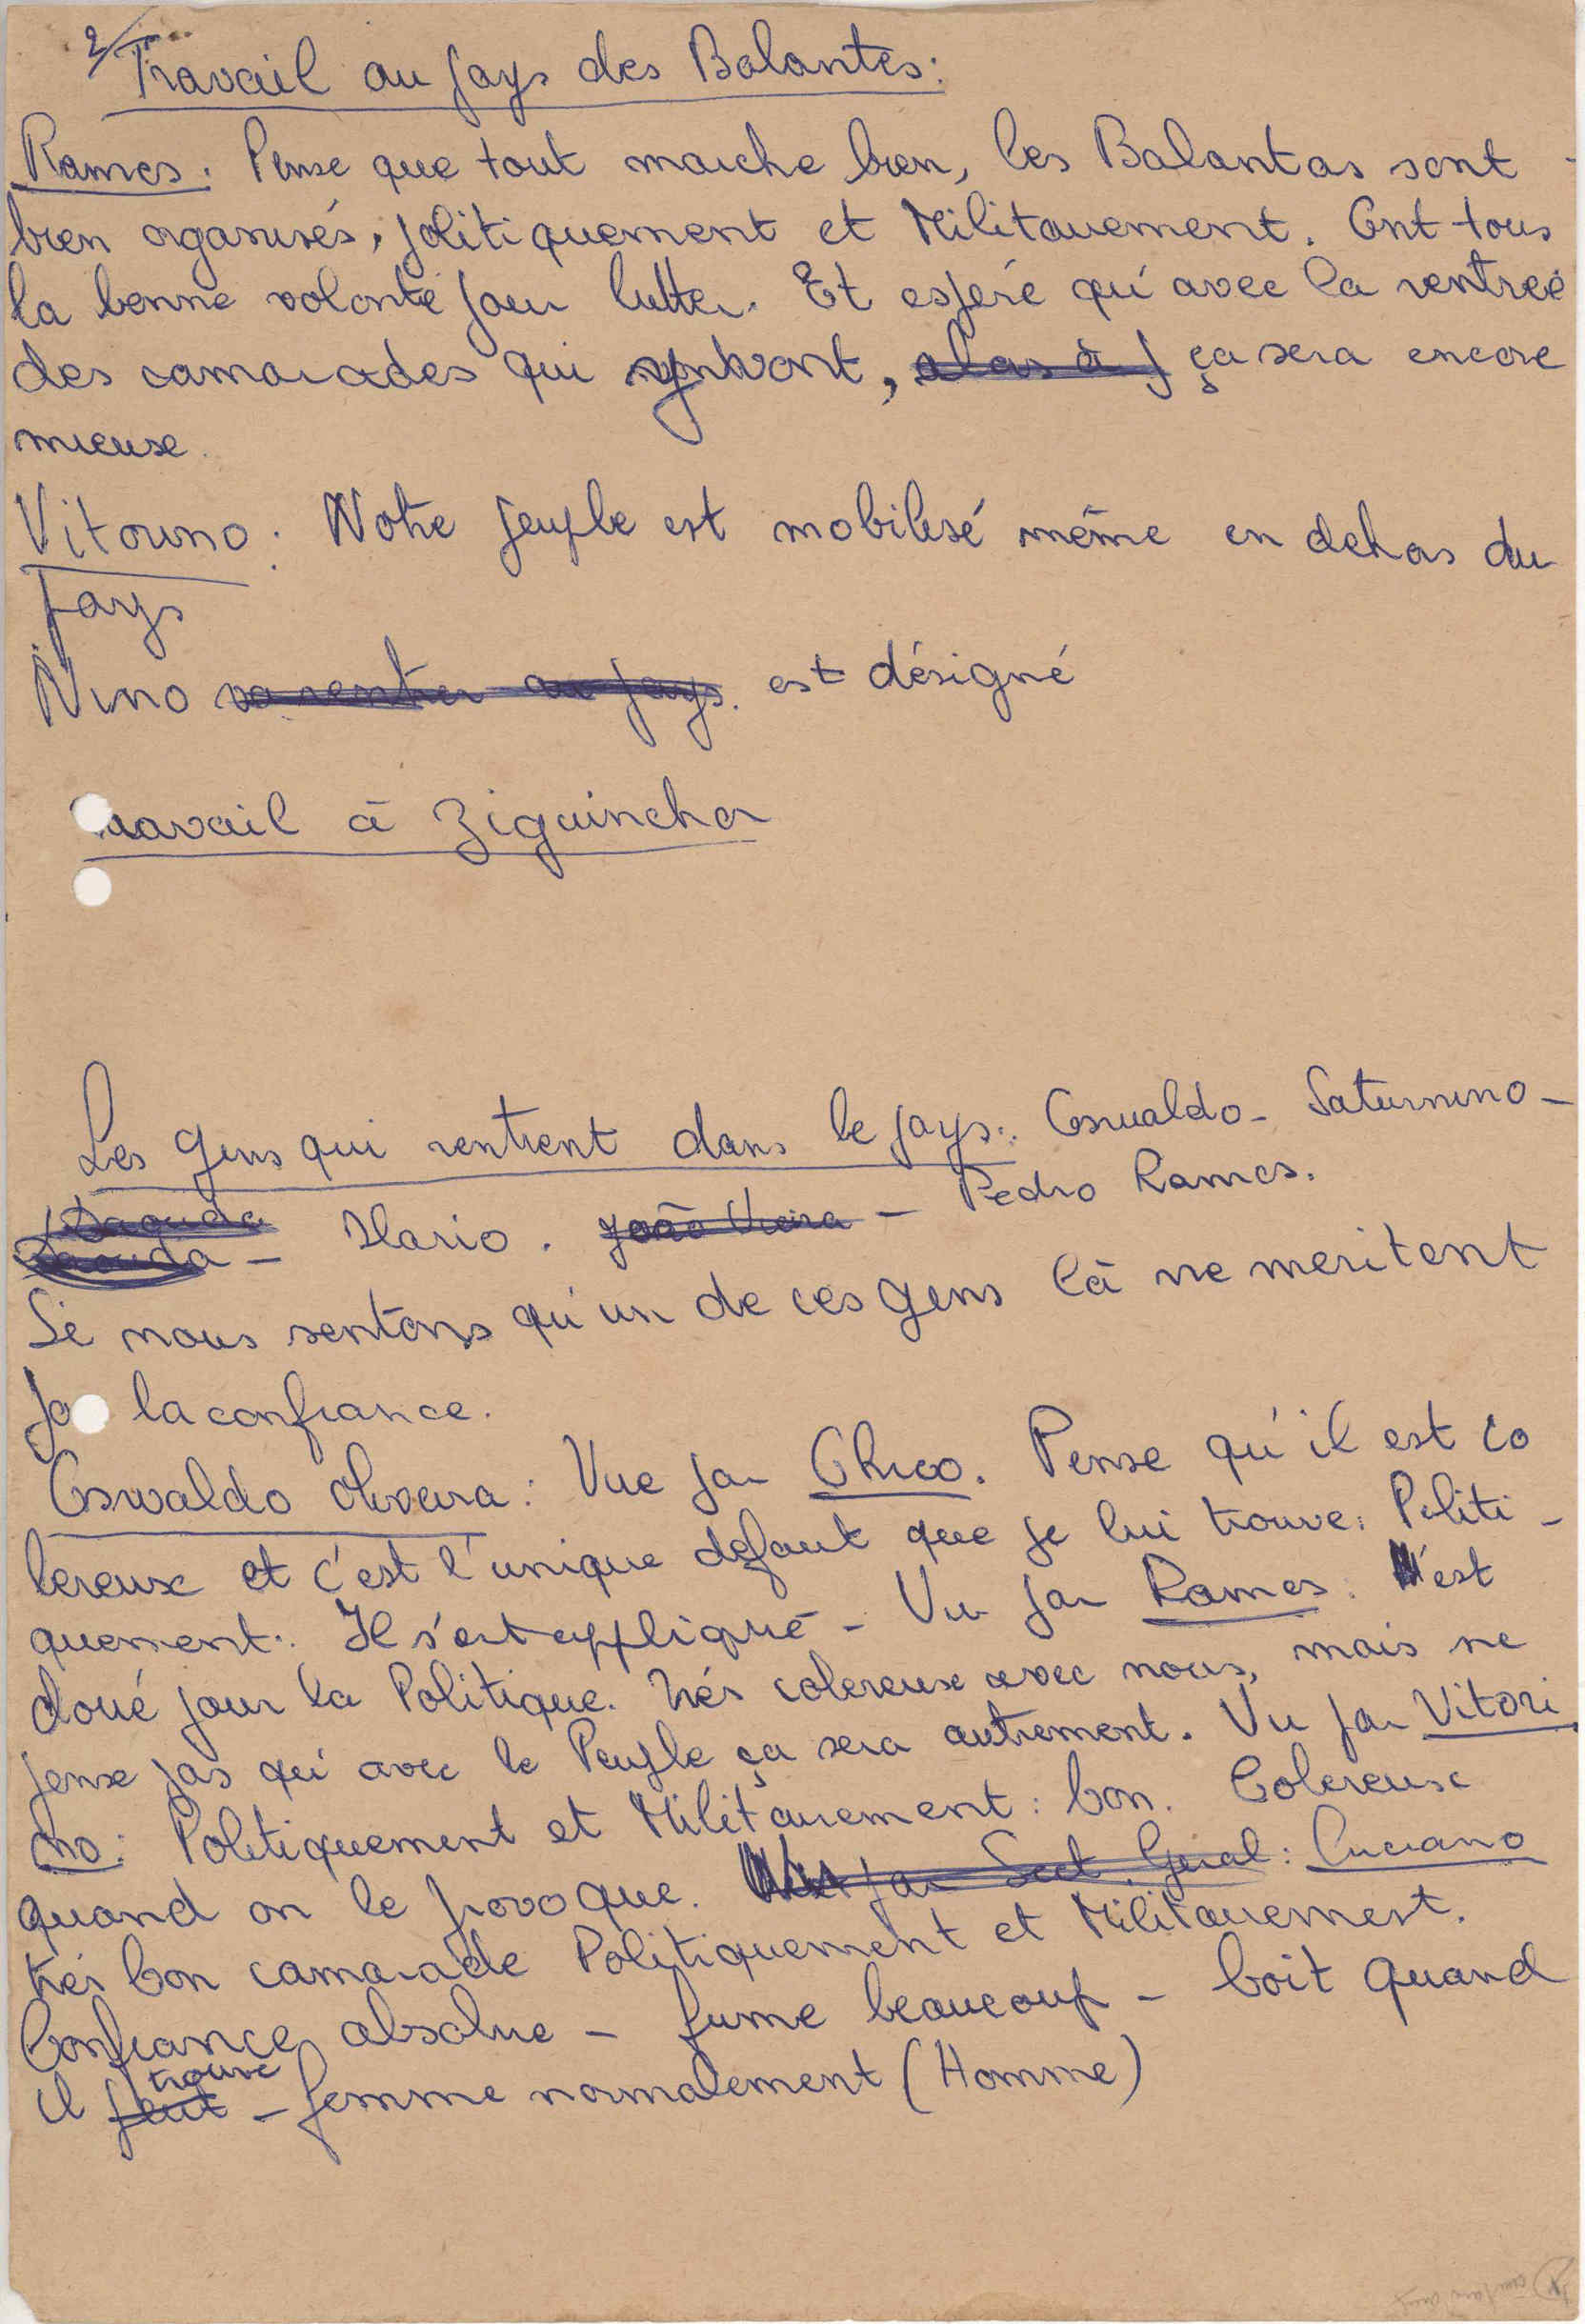 2/ Travail au pays des Balantes:
Rames. Pense que tout marche bien, les Balantas sont
bien organisés, politiquement et Militairement. Ont tous
la bonne volonté pour lutter. Et espéré qu'avec la rentreé
des camarades qui vont, ça sera encore
mieuse.
Vitorino: Notre peuple est mobilisé même en dehors du
pays
Nino va rentrer au pays. est désigné
Travail à Ziguinchor
Les gens qui rentrent dans le pays: Osvaldo - Saturnino -
Daouda
Daouda - Ilario. João Vieira - Pedro Rames.
Si nous sentons qu'un de ces gens là ne meritent
pas la confiance.
Oswaldo Oliveira: Vue par Chico. Pense qu'il est co
lereux et c'est l'unique defaut que je lui trouve. Politi-
quement: Il s'est appliqué - Vu par Rames. N'est
doué pour la Politique. Trés colereuse avec nous, mais ne
pense pas qui avec le Peuple ça sera autrement. Vu par Vitori
no: Politiquement et Militairement: bon. Colereuse
quand on le provoque. Vu par Sect. Geral: Luciano
trés bon camarade Politiquement et Militairement.
Confiance absolue - fume beaucoup - boit quand
il peut trouve - femme normalement (Homme)